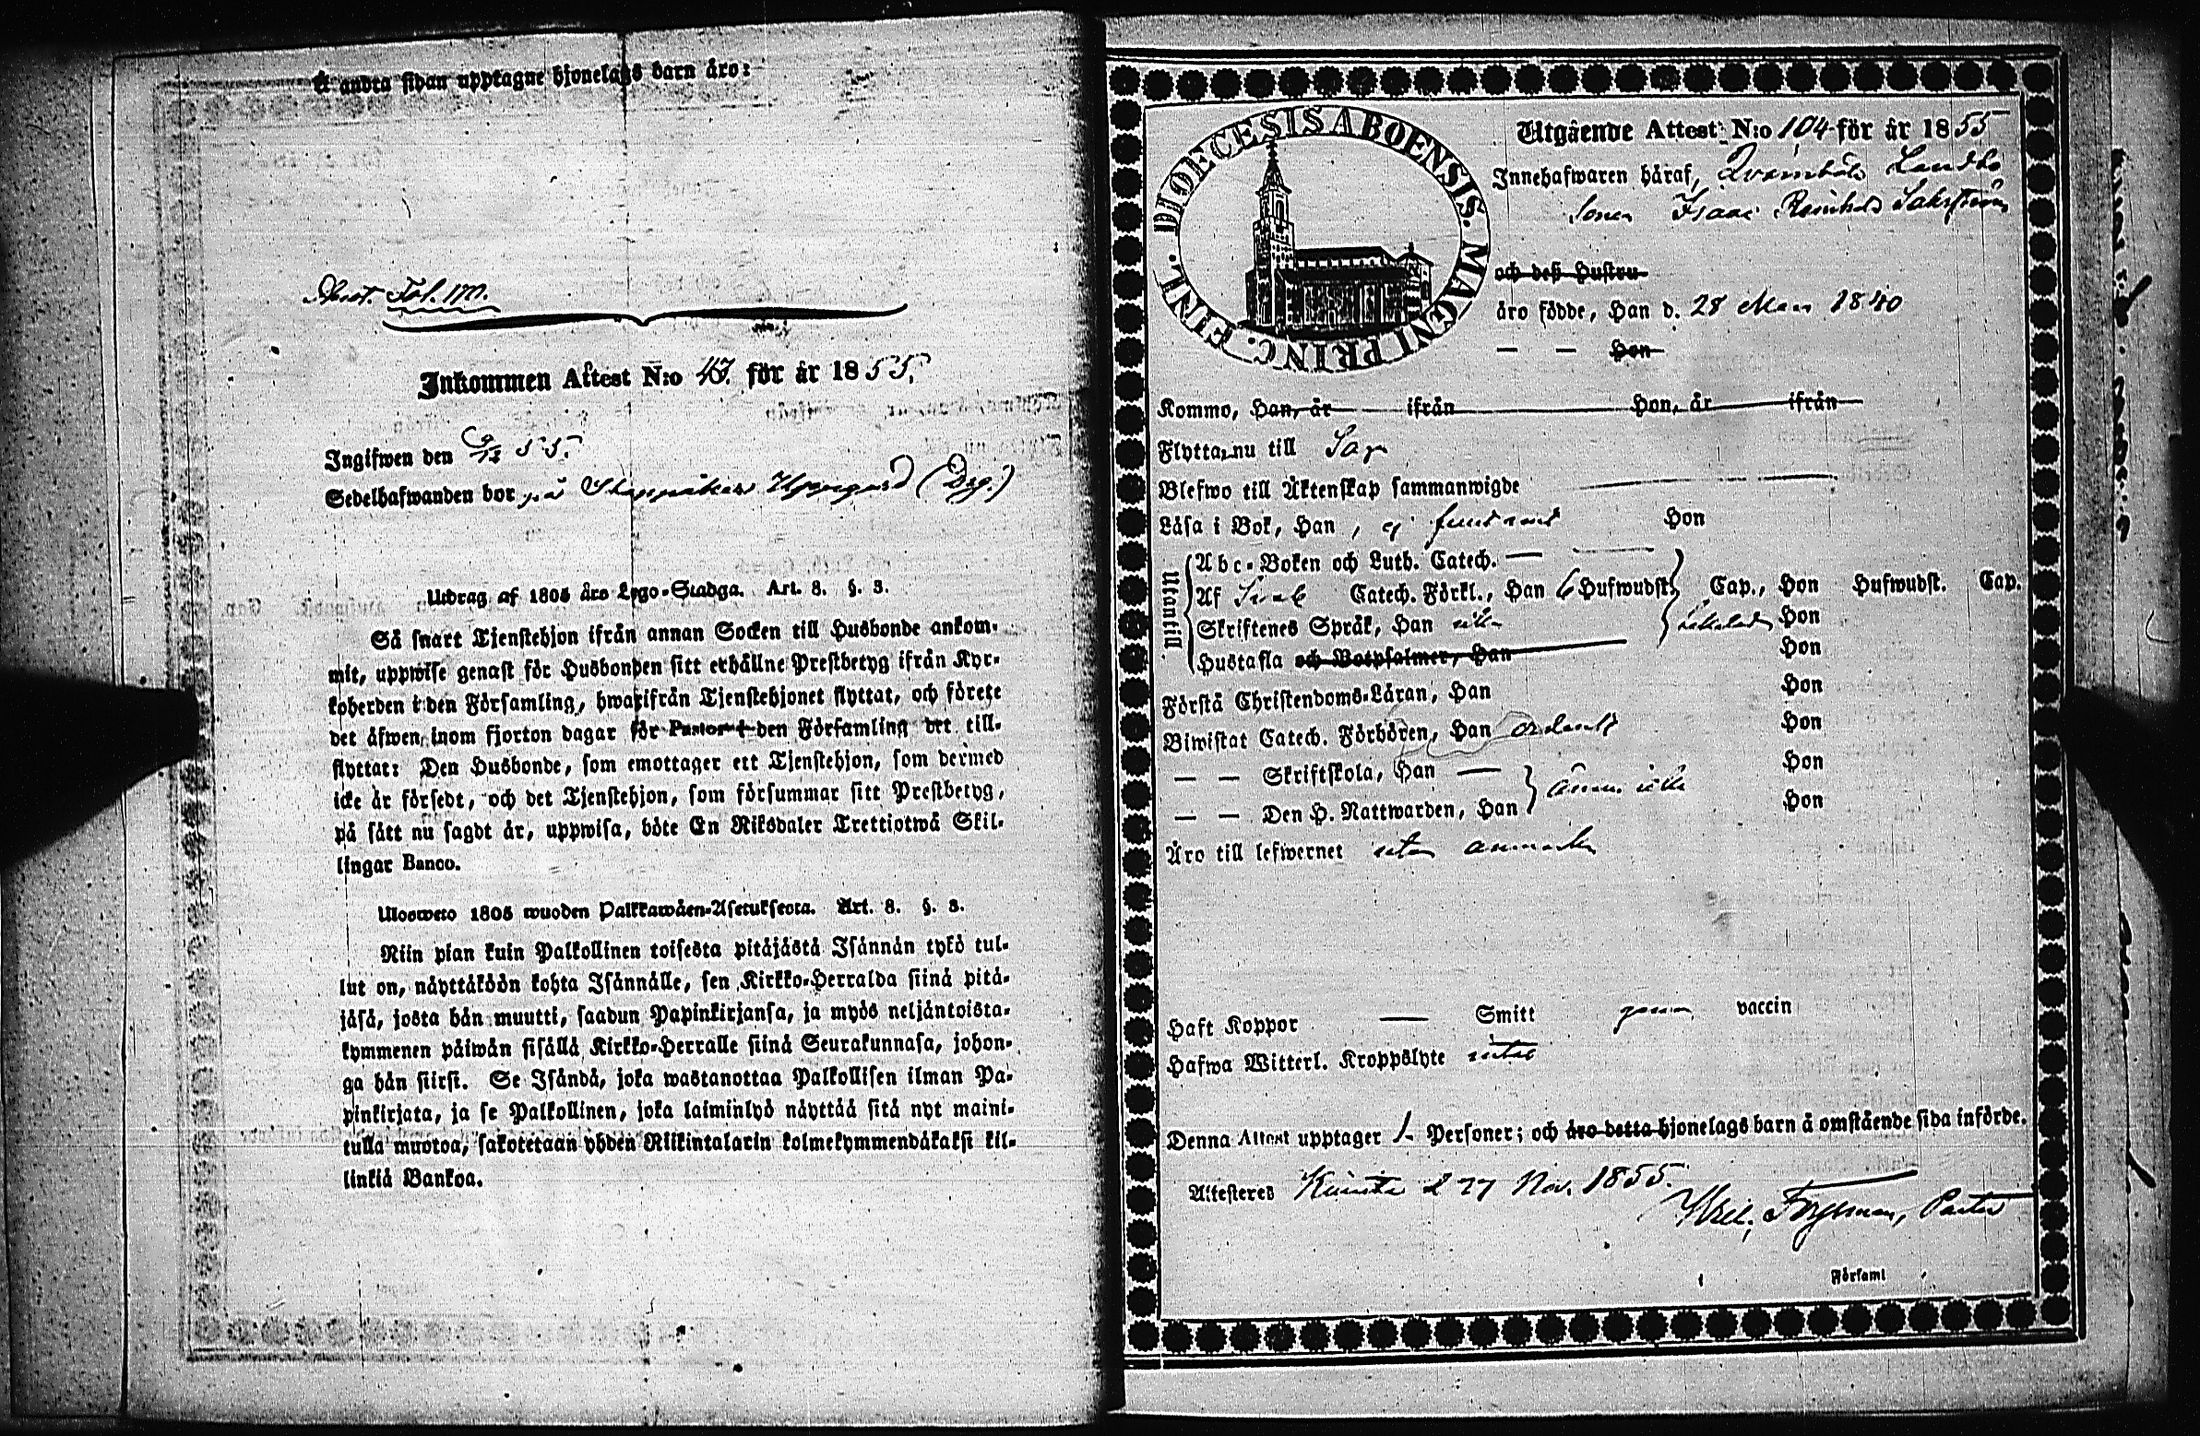 Å andra sidan upptagne hjonelags barn äro:
Fol. 170.
Inkommen Attest N:o 43. för år 1855.
Ingifwen den 9/12 55.
Sedelhafwanden bor på Uppgård (Drg.)
Utdrag af 1805 års Lego-Stadga. Art. 8. §. 3.
Så snart Tjenstehjon ifrån annan Socken till Husbonde ankom-
mit, uppwise genast för Husbonden sitt erhållne Prestbetyg ifrån Kyr-
koherden i den Församling, hwarifrån Tjenstehjonet flyttat, och förete
det äfwen inom fjorton dagar för Pastor i den Församling det till-
flyttat: Den Husbonde, som emottager ett Tjenstehjon, som dermed
icke är försedt, och det Tjenstehjon, som försummar sitt Prestbetyg,
på sätt nu sagdt är, uppwisa, böte En Riksdaler Trettiotwå Skil-
lingar Banco.
Uloswedo 1805 wuoden Palkkawäen-Asetuksesta. Art. 8. §. 3.
Niin pian kuin Palkollinen toisesta pitäjästä Isännän tykö tul-
lut on, näyttäköön kohta Isännälle, sen Kirkko-Herralda siinä pitä-
jäsä, josta hän muutti, saadun Papinkirjansa, ja myös neljäntoista-
kymmenen päiwän sisällä Kirkko-Herralle siinä Seurakunnasa, johon-
ga hän siirsi. Se Isändä, joka wastanottaa Palkollisen ilman Pa-
pinkirjata, ja se Palkollinen, joka laiminlyö näyttää sitä nyt maini-
tulla muotoa, sakotetaan yhden Riikintalarin kolmekymmendäkaksi kil-
linkiä Bankoa.
DIOECESIS ABOENSIS. MAGNI PRINC. FINL.
Utgående Attest N:o 104 för år 1855
Innehafwaren häraf, Landbo
Sonen Isaac Reinhold
och deß Hustru
äro födde, Han d. 28 Mars 1840
— — Hon
Kommo, Han, år ifrån Hon, år ifrån
Flytta nu till
Blefwo till Äktenskap sammanwigde
Läsa i Bok, Han, Hon
Utantill
Abc-Boken och Luth. Catech. —
Af Catech. Förkl., Han 6 Hufwudst. Cap., Hon Hufwudst. Cap.
Skriftenes Språk, Han Hon
Hustafla och Botpsalmer, Han Hon
Förstå Christendoms-Läran, Han Hon
Biwistat Catech. Förhören, Han ordentl Hon
— — Skriftskola, Han — Hon
— — Den H. Nattwarden, Han ännu icke Hon
Äro till lefwernet utan anmärkn
Haft Koppor — Smitt genom vaccin
Hafwa Witterl. Kroppslyte intet
Denna Attest upptager 1 Personer; och äro detta hjonelags barn å omstående sida införde.
Attesteres Kimito d 27 Nov. 1855.
Pastor
Församl